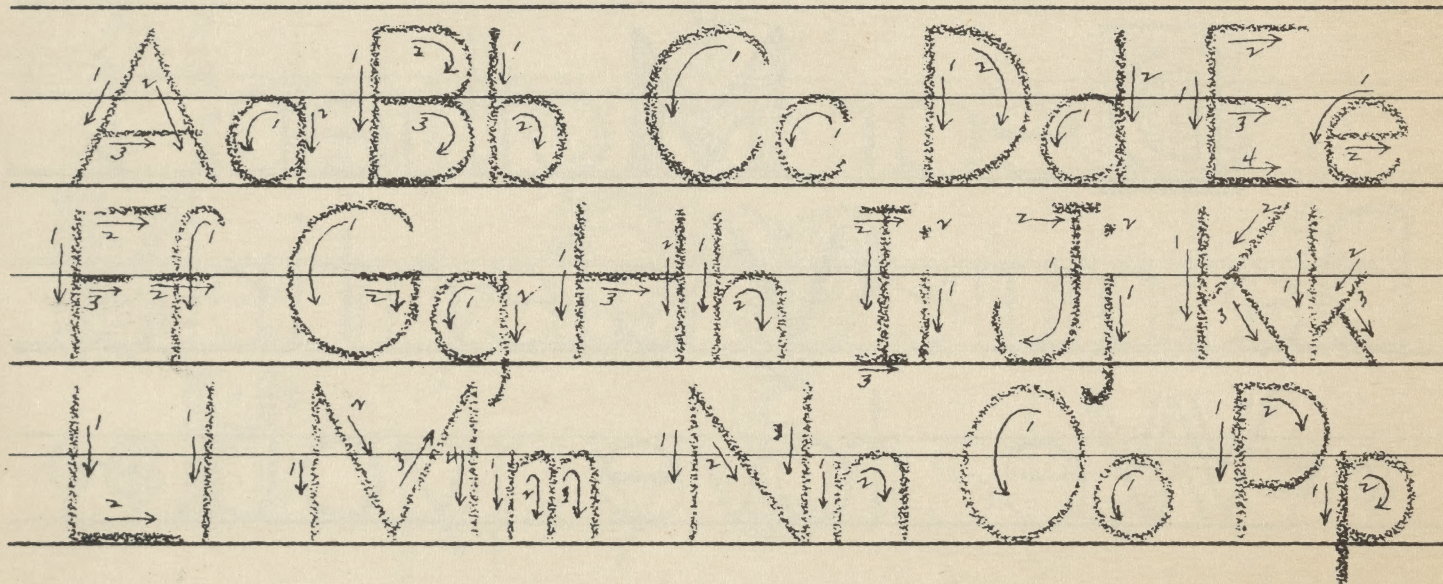 Aa Bb Cc Dd Ee
Ff Gg Hh Ii Jj Kk
Ll Mm Nn Oo Pp